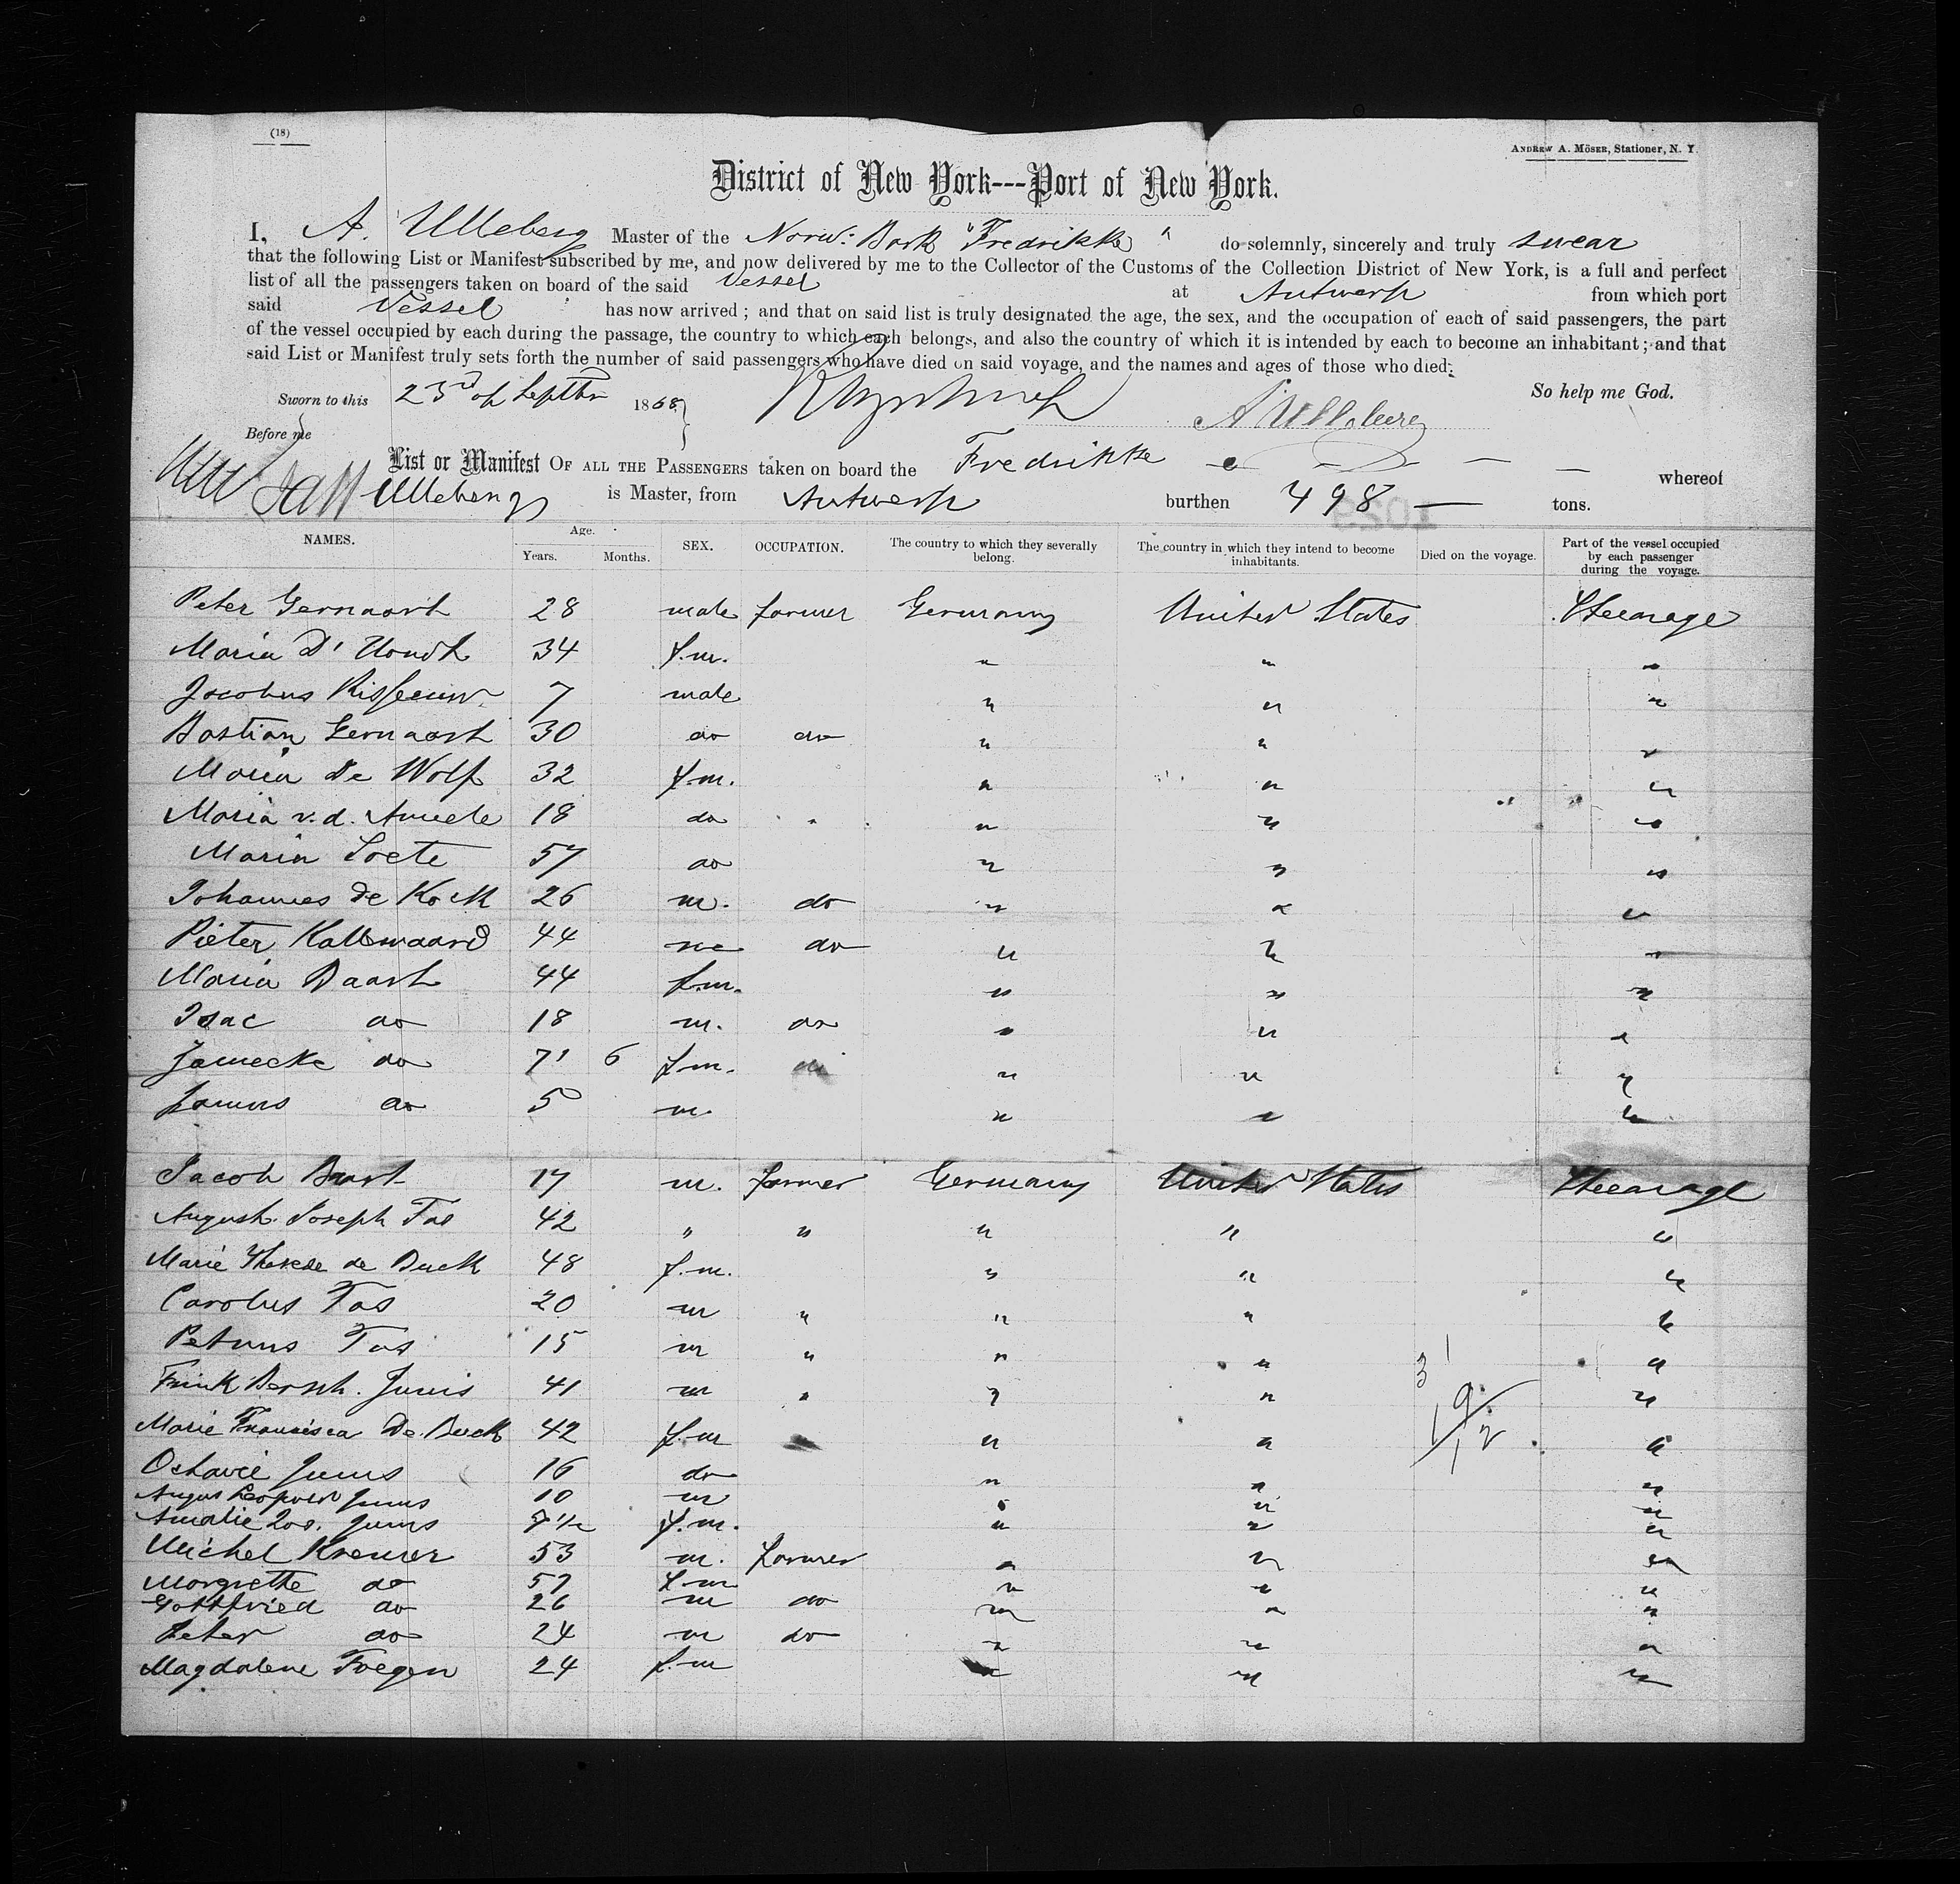 (18)
ANDREW A. MÖSER, Stationer, N. Y.
District of New York---Port of New York.
I, A. Ulleberg Master of the Norw: Bark "Fredrikke" do solemnly, sincerely and truly swear
that the following List or Manifest subscribed by me, and now delivered by me to the Collector of the Customs of the Collection District of New York, is a full and perfect
list of all the passengers taken on board of the said Vessel at Antwerp from which port
said Vessel has now arrived; and that on said list is truly designated the age, the sex, and the occupation of each of said passengers, the part
of the vessel occupied by each during the passage, the country to which each belongs, and also the country of which it is intended by each to become an inhabitant; and that
said List or Manifest truly sets forth the number of said passengers who have died on said voyage, and the names and ages of those who died.
Sworn to this 23rd of Septbr 1868 So help me God.
Before me A Ulleberg
List or Manifest OF ALL THE PASSENGERS taken on board the Fredrikke whereof
Ulleberg is Master, from Antwerp burthen 498 — tons.
NAMES. Age. Years. Months. SEX. OCCUPATION. The country to which they severally belong. The country in which they intend to become inhabitants. Died on the voyage. Part of the vessel occupied by each passenger during the voyage.
Peter Gernaart 28 male farmer Germany United States Steerage
Maria D'Hondt 34 f.m. " " "
Jacobus Risseeuw 7 male " " "
Bastian Gernaart 30 do do " " "
Maria de Wolf 32 f.m. " " "
Maria v.d. 18 do " " "
Maria Soete 57 do " " "
Johannes de Kock 26 m. do " " "
Pieter 44 m do " " "
Maria Baart 44 f.m. " " "
Isac do 18 m. do " " "
Janneke do 7 6 f.m. " " "
do 5 m. " " "
Jacob Baart 17 m. farmer Germany United States Steerage
August Joseph Tas 42 " " " " "
Marie Therese de Buck 48 f.m. " " "
Carolus Tas 20 m " " " "
Petrus Tas 15 m " " " "
41 m " " " "
Marie Francisca De Buck 42 f.m " " "
Octavie 16 do " " "
Leopold 10 m " " "
Amalie 7 1/2 f.m. " " "
Michel Kremer 53 m. farmer " " "
Margrette do 57 f.m " " "
Gottfried do 26 m do " " "
Peter do 24 m do " " "
Magdalene 24 f.m " " "